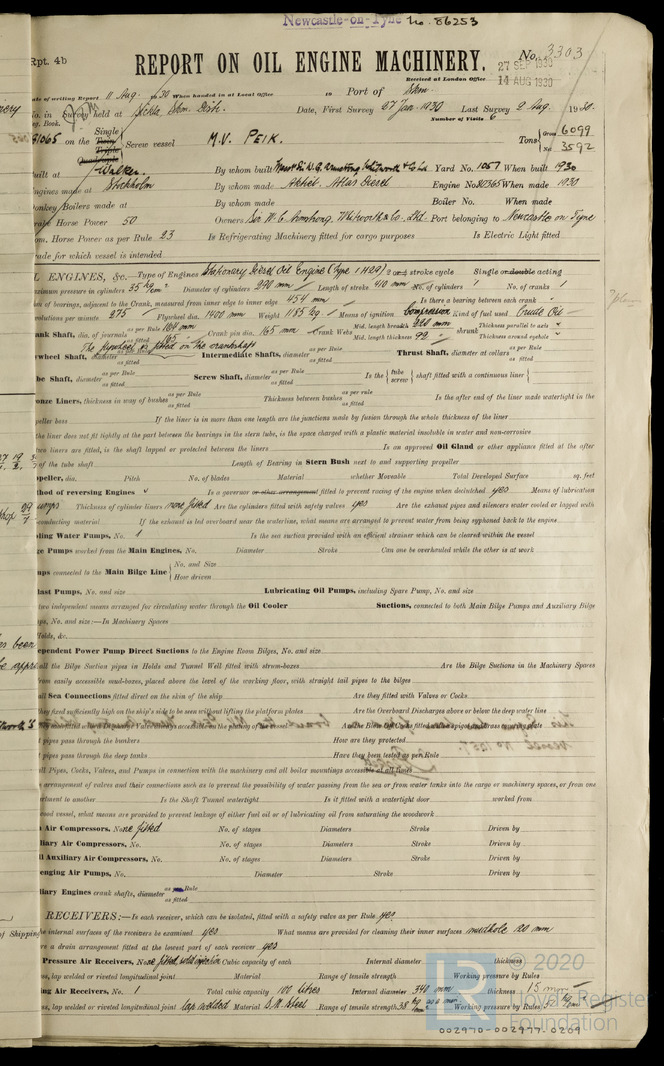 Newcastle-on-Tyne No. 86253
Rpt. 4b
REPORT ON OIL ENGINE MACHINERY.
No. 3303
27 SEP 1930
Received at London Office
14 AUG 1930
Date of writing Report 11 Aug. 1930 When handed in at Local Office
Port of
No. in Survey held at
Date, First Survey 27 Jan. 1930 Last Survey 2 Aug. 1930
Reg. Book.
Number of Visits 6
on the Single Twin Triple Quadruple Screw vessel M.V. PEIK.
Tons Gross 6099 Net 3592
Built at Walker. By whom built Yard No. 1057 When built 1930
Engines made at Stockholm By whom made Aktieb. Atlas Diesel Engine No. 82365 When made 1930
Donkey Boilers made at By whom made Boiler No. When made
Brake Horse Power 50 Owners Sir W. G. Armstrong, Whitworth & Co. Ltd. Port belonging to Newcastle on Tyne
Nom. Horse Power as per Rule 23 Is Refrigerating Machinery fitted for cargo purposes Is Electric Light fitted
Trade for which vessel is intended
OIL ENGINES, &c. Type of Engines Stationary Diesel Oil Engine (Type 1 H29) 2 or 4 stroke cycle Single or double acting
Maximum pressure in cylinders 35 kg/cm² Diameter of cylinders 290 mm Length of stroke 410 mm No. of cylinders 1 No. of cranks 1
Span of bearings, adjacent to the Crank, measured from inner edge to inner edge 454 mm Is there a bearing between each crank
Revolutions per minute 275 Flywheel dia. 1400 mm Weight 1185 kg Means of ignition Compression Kind of fuel used Crude Oil
Crank Shaft, dia. of journals as per Rule 164 mm as fitted 165 Crank pin dia. 165 mm Crank Webs Mid. length breadth 220 mm Mid. length thickness 92 shrunk Thickness parallel to axis Thickness around eyehole
The flywheel is fitted on the crankshaft
Flywheel Shaft, diameter as per Rule as fitted Intermediate Shafts, diameter as per Rule as fitted Thrust Shaft, diameter at collars as per Rule as fitted
Tube Shaft, diameter as per Rule as fitted Screw Shaft, diameter as per Rule as fitted Is the tube screw shaft fitted with a continuous liner
Bronze Liners, thickness in way of bushes as per Rule as fitted Thickness between bushes as per rule as fitted Is the after end of the liner made watertight in the
propeller boss If the liner is in more than one length are the junctions made by fusion through the whole thickness of the liner
If the liner does not fit tightly at the part between the bearings in the stern tube, is the space charged with a plastic material insoluble in water and non-corrosive
If two liners are fitted, is the shaft lapped or protected between the liners Is an approved Oil Gland or other appliance fitted at the after
end of the tube shaft Length of Bearing in Stern Bush next to and supporting propeller
Propeller, dia. Pitch No. of blades Material whether Moveable Total Developed Surface sq. feet
Method of reversing Engines Is a governor or other arrangement fitted to prevent racing of the engine when declutched yes Means of lubrication
pumps Thickness of cylinder liners none fitted Are the cylinders fitted with safety valves yes Are the exhaust pipes and silencers water cooled or lagged with
non-conducting material If the exhaust is led overboard near the waterline, what means are arranged to prevent water from being syphoned back to the engine
Cooling Water Pumps, No. 1 Is the sea suction provided with an efficient strainer which can be cleared within the vessel
Bilge Pumps worked from the Main Engines, No. Diameter Stroke Can one be overhauled while the other is at work
Pumps connected to the Main Bilge Line No. and Size How driven
Ballast Pumps, No. and size Lubricating Oil Pumps, including Spare Pump, No. and size
Are two independent means arranged for circulating water through the Oil Cooler Suctions, connected to both Main Bilge Pumps and Auxiliary Bilge
Pumps, No. and size:—In Machinery Spaces
Holds, &c.
Independent Power Pump Direct Suctions to the Engine Room Bilges, No. and size
Are all the Bilge Suction pipes in Holds and Tunnel Well fitted with strum-boxes Are the Bilge Suctions in the Machinery Spaces
from easily accessible mud-boxes, placed above the level of the working floor, with straight tail pipes to the bilges
Are all Sea Connections fitted direct on the skin of the ship Are they fitted with Valves or Cocks
Are they fixed sufficiently high on the ship's side to be seen without lifting the platform plates Are the Overboard Discharges above or below the deep water line
pipes pass through the bunkers How are they protected
pipes pass through the deep tanks Have they been tested as per Rule
Are all Pipes, Cocks, Valves, and Pumps in connection with the machinery and all boiler mountings accessible at all times
arrangement of valves and their connections such as to prevent the possibility of water passing from the sea or from water tanks into the cargo or machinery spaces, or from one
compartment to another Is the Shaft Tunnel watertight Is it fitted with a watertight door worked from
vessel, what means are provided to prevent leakage of either fuel oil or of lubricating oil from saturating the woodwork
Main Air Compressors, No. none fitted No. of stages Diameters Stroke Driven by
Auxiliary Air Compressors, No. No. of stages Diameters Stroke Driven by
Small Auxiliary Air Compressors, No. No. of stages Diameters Stroke Driven by
Scavenging Air Pumps, No. Diameter Stroke Driven by
Auxiliary Engines crank shafts, diameter as per Rule as fitted
AIR RECEIVERS:—Is each receiver, which can be isolated, fitted with a safety valve as per Rule yes
Can the internal surfaces of the receivers be examined yes What means are provided for cleaning their inner surfaces mudhole 20 mm
Is there a drain arrangement fitted at the lowest part of each receiver yes
High Pressure Air Receivers, No. none fitted, solid injection Cubic capacity of each Internal diameter thickness
Seamless, lap welded or riveted longitudinal joint Material Range of tensile strength Working pressure by Rules
Starting Air Receivers, No. 1 Total cubic capacity 100 litres Internal diameter 340 mm thickness 15 mm
Seamless, lap welded or riveted longitudinal joint lap welded Material S.M. Steel Range of tensile strength Working pressure by Rules
LR © 2020
Lloyd's Register
Foundation
002970-002977-0209